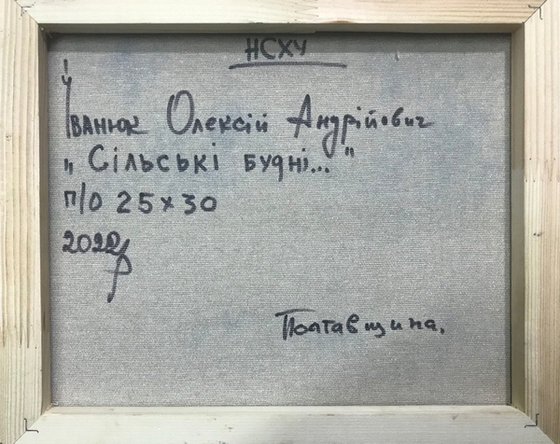 НСХУ
Іванюк Олексій Андрійович
„Сільські будні..."
п/о 25х30
2022р
Полтавщина.